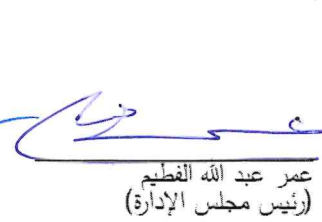 عمر عبد الله الفطيم
(رئيس مجلس الإدارة)